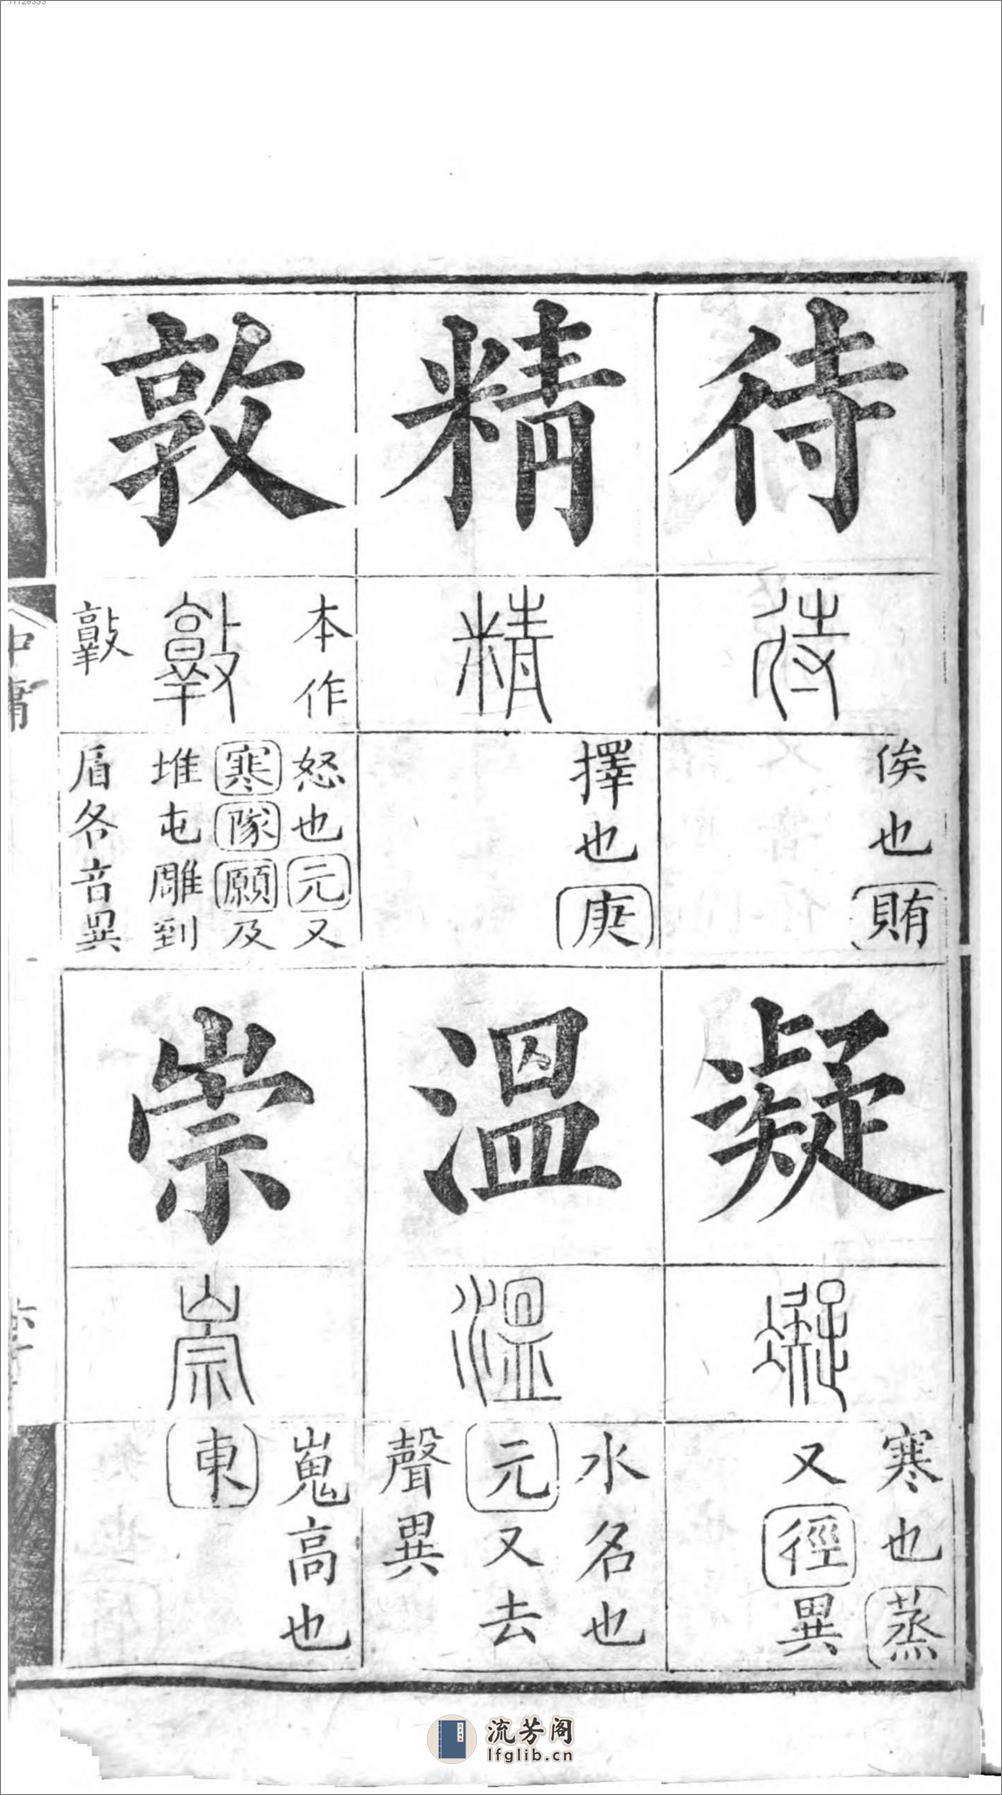 待
待
俟也賄
凝
凝
寒也蒸
又徑異
精
精
擇也庚
溫
溫
水名也
元又去
聲異
敦
本作
𢾕
怒也元又
寒隊願及
堆屯雕到
盾各音異
崇
崇
嵬高也
東
中庸
流芳阁
lfglib.cn